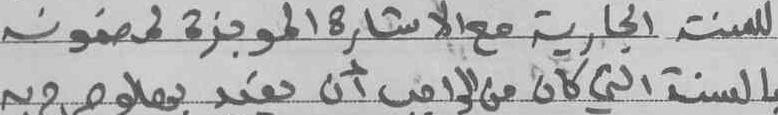 للسنة الجارية مع الإشارة الموجزة لمضمونه
بالسنة التي كان من الواجب أن